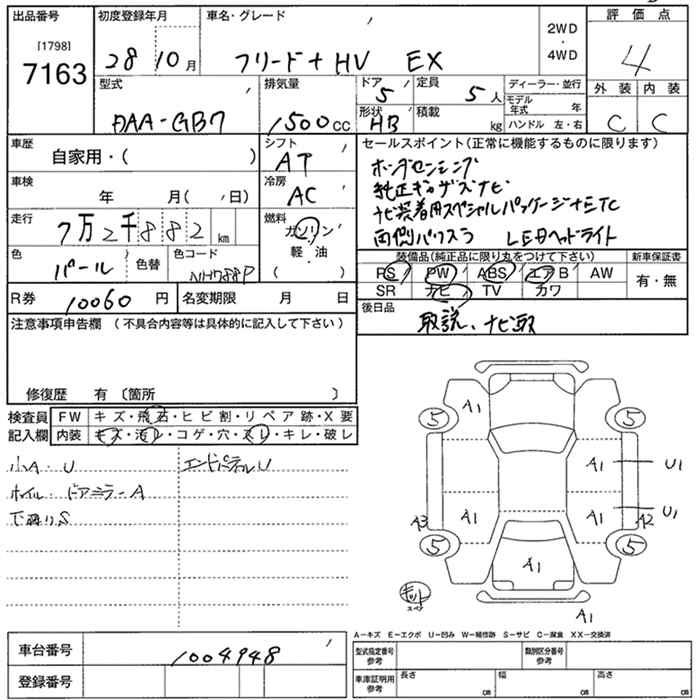 出品番号 初度登録年月 車名・グレード 評価点
[1798] 7163
28 10月
フリード+ HV EX
2WD・4WD
4
型式 排気量 ドア 定員 ディーラー・並行 外装 内装
DAA-GB7 1500cc 5 5人 モデル年式 年 C C
形状 積載
HB kg ハンドル 左・右
車歴 自家用・( )
シフト AT
セールスポイント(正常に機能するものに限ります)
ホンダセンシング
純正ギャザズナビ
ナビ装着用スペシャルパッケージ+ETC
両側パワスラ LEDヘッドライト
車検 年 月( 日)
冷房 AC
走行 7万2千882km
燃料 ガソリン 軽油 ( )
色 パール 色替 色コード NH788P
装備品(純正品に限り丸をつけて下さい) 新車保証書
PS PW ABS エアB AW 有・無
SR ナビ TV カワ
R券 10060円 名変期限 月 日
後日品 取説、ナビ取
注意事項申告欄(不具合内容等は具体的に記入して下さい)
修復歴 有〔箇所 〕
検査員記入欄
FW キズ・飛石・ヒビ割・リペア跡・X要
内装 キズ・汚レ・コゲ・穴・スレ・キレ・破レ
小A・U エンドパネルU
ホイル・ドアミラーA
下廻りS
A1
5 5
A1 U1
A3 A1 A1 U1 A2
5 5
A1
キット
スペア
A1
A-キズ E-エクボ U-凹み W-補修跡 S-サビ C-腐食 XX-交換済
車台番号 1004948
登録番号
型式指定番号 参考 類別区分番号 参考
車庫証明用 参考 長さ cm 幅 cm 高さ cm